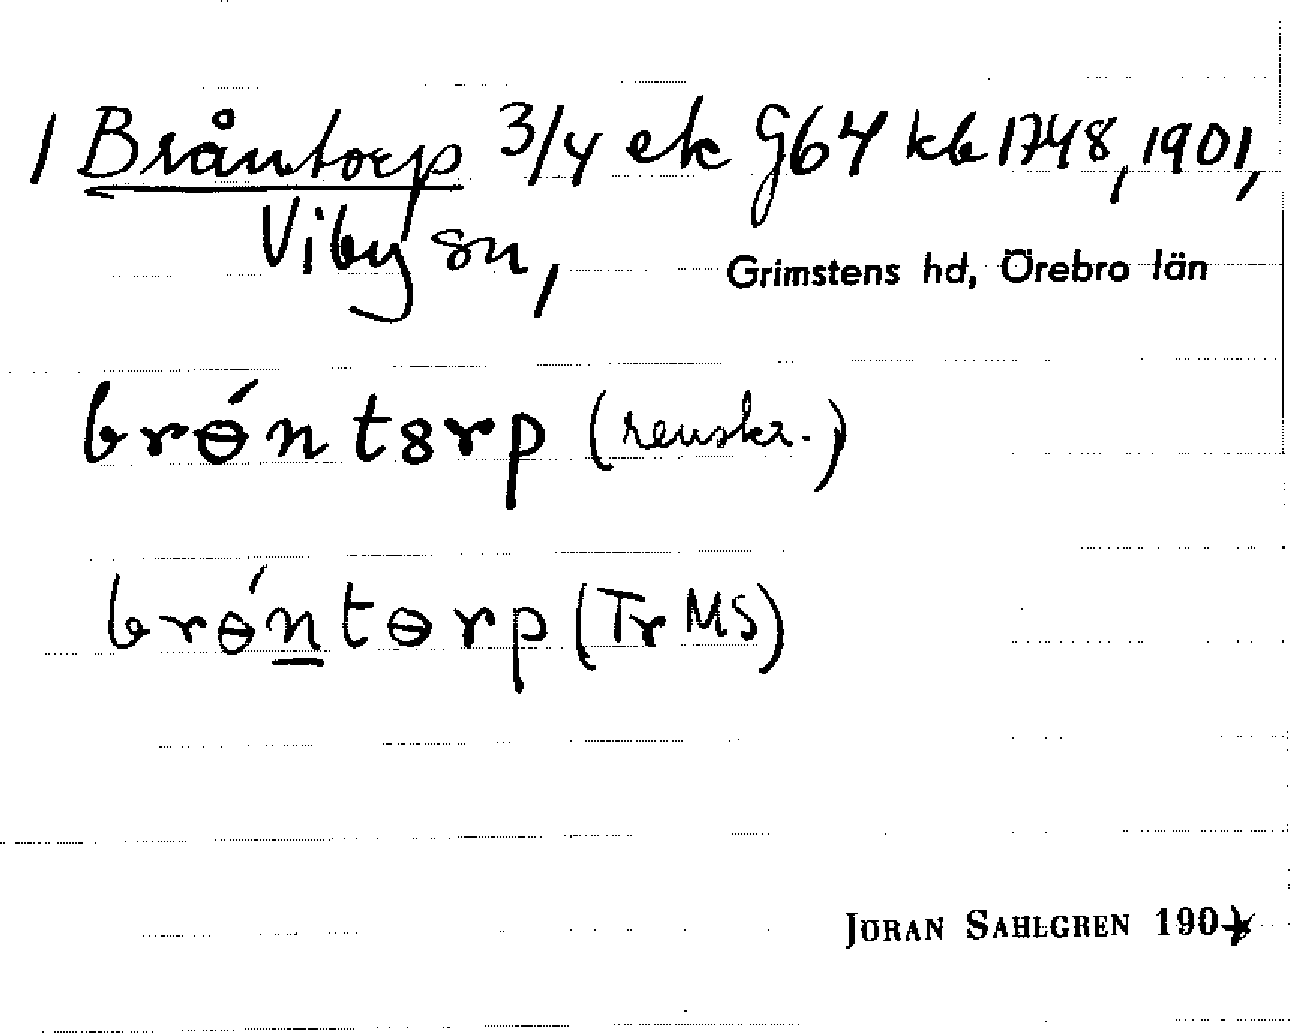 1 Bråntorp 3/4 ek G64 kb 1748, 1901,
Viby sn, Grimstens hd, Örebro län
brɵ́ntsrp (renskr.)
brɵ́ntɵrp (Tr MS)
JÖRAN SAHLGREN 190